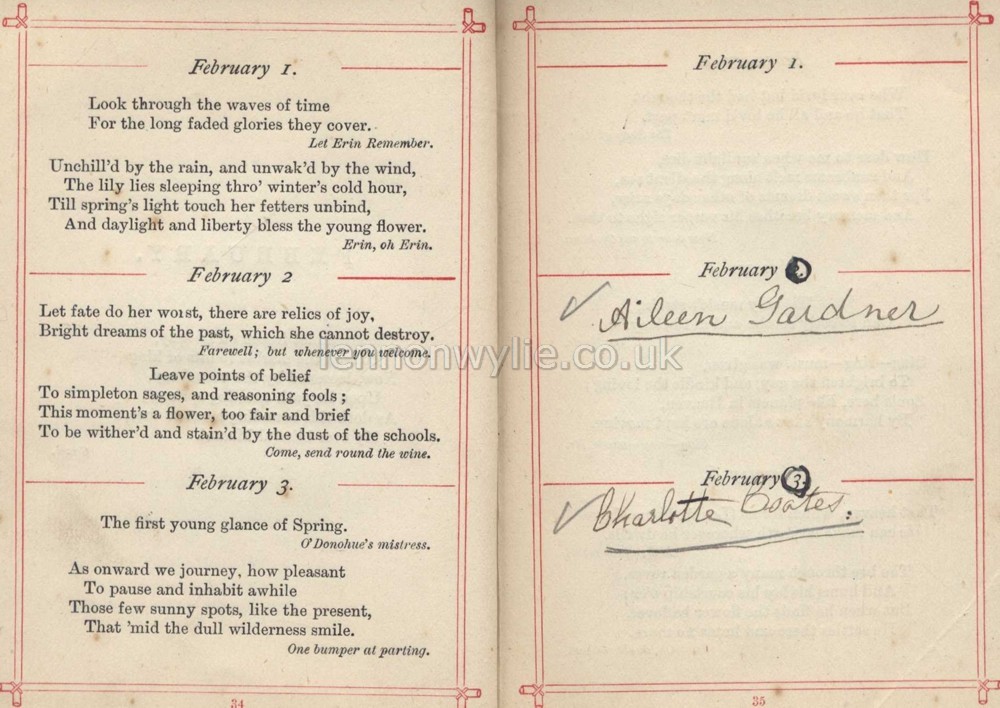 February 1.
Look through the waves of time
For the long faded glories they cover.
Let Erin Remember.
Unchill'd by the rain, and unwak'd by the wind,
The lily lies sleeping thro' winter's cold hour,
Till spring's light touch her fetters unbind,
And daylight and liberty bless the young flower.
Erin, oh Erin.
February 2
Let fate do her worst, there are relics of joy,
Bright dreams of the past, which she cannot destroy.
Farewell; but whenever you welcome.
Leave points of belief
To simpleton sages, and reasoning fools;
This moment's a flower, too fair and brief
To be wither'd and stain'd by the dust of the schools.
Come, send round the wine.
February 3.
The first young glance of Spring.
O'Donohue's mistress.
As onward we journey, how pleasant
To pause and inhabit awhile
Those few sunny spots, like the present,
That 'mid the dull wilderness smile.
One bumper at parting.
34
February 1.
February 2.
Aileen Gardner
February 3.
Charlotte Coates.
35
lennonwylie.co.uk